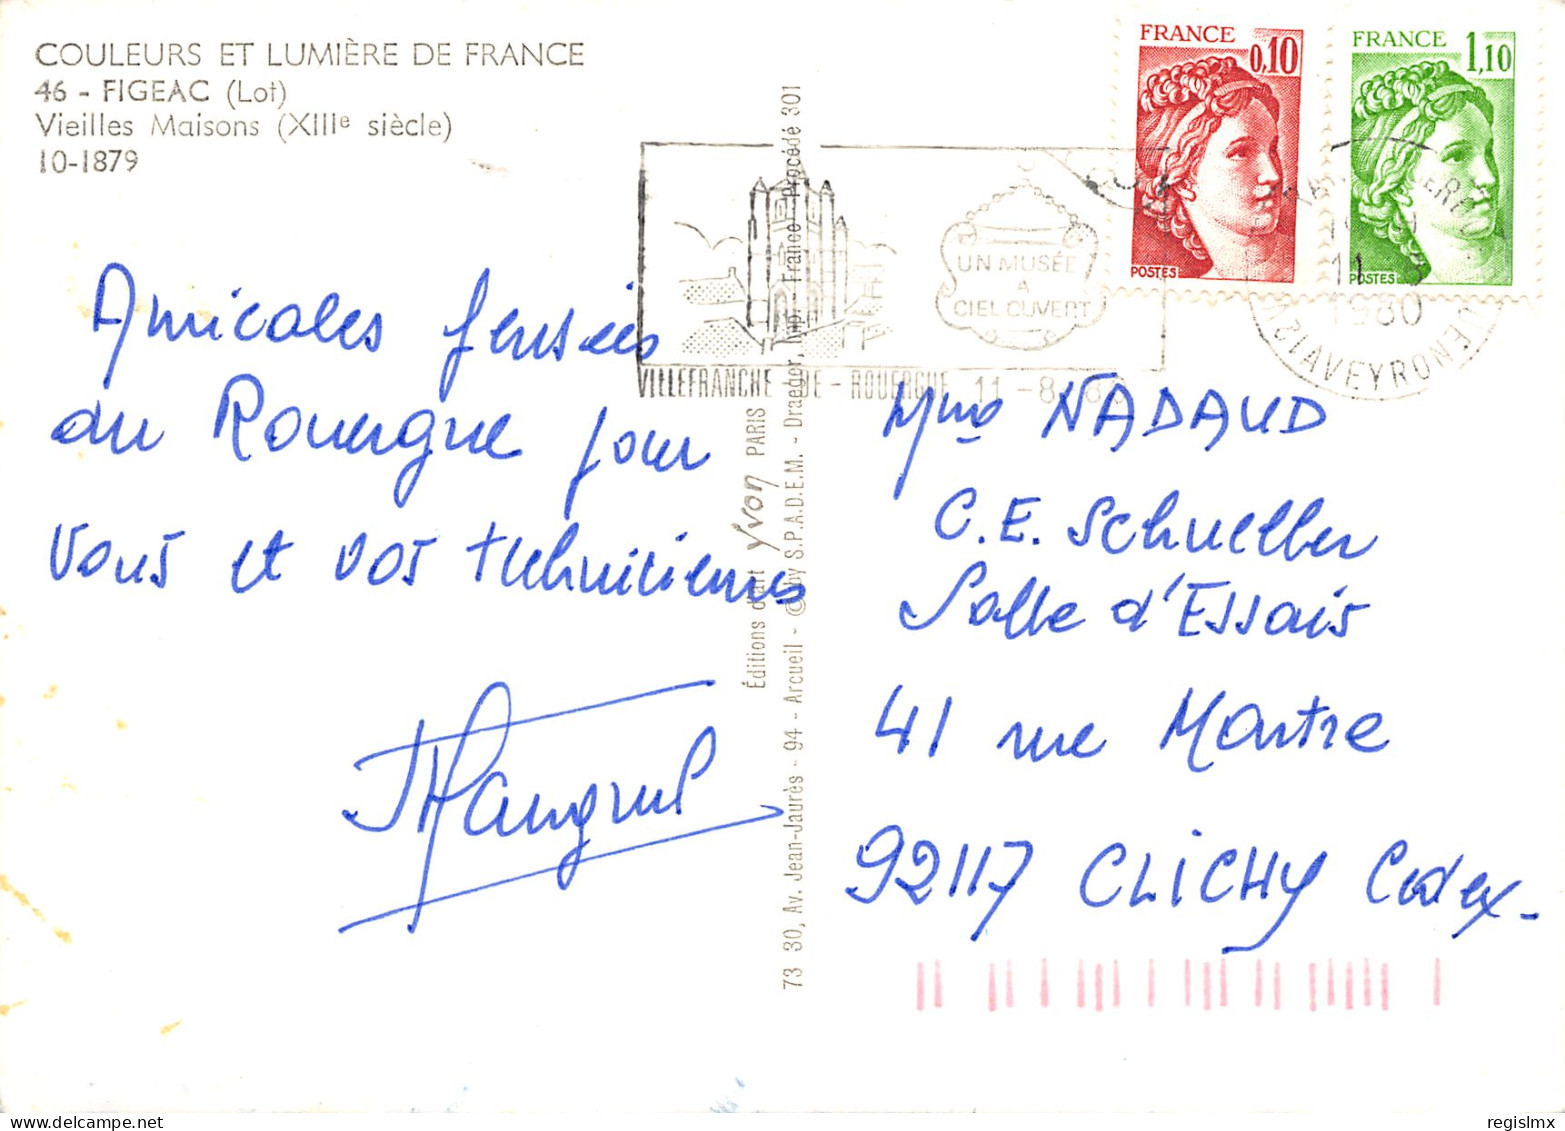 COULEURS ET LUMIÈRE DE FRANCE
46 - FIGEAC (Lot)
Vieilles Maisons (XIIIe siècle)
10-1879
FRANCE
0,10
POSTES
FRANCE
1,10
POSTES
UN MUSÉE
A
CIEL OUVERT
VILLEFRANCHE - DE - ROUERGUE 11-8
11
1980
12 AVEYRON
Amicales pensées
du Rouergue pour
vous et vos techniciennes
Éditions d'art Yvon PARIS
73 30, Av. Jean-Jaurès - 94 - Arcueil - © by S.P.A.D.E.M. - Draeger, Imp - France - Procédé 301
Mme NADAUD
C.E. Schueller
Salle d'Essais
41 rue Martre
92117 CLICHY Cedex -
regislmx